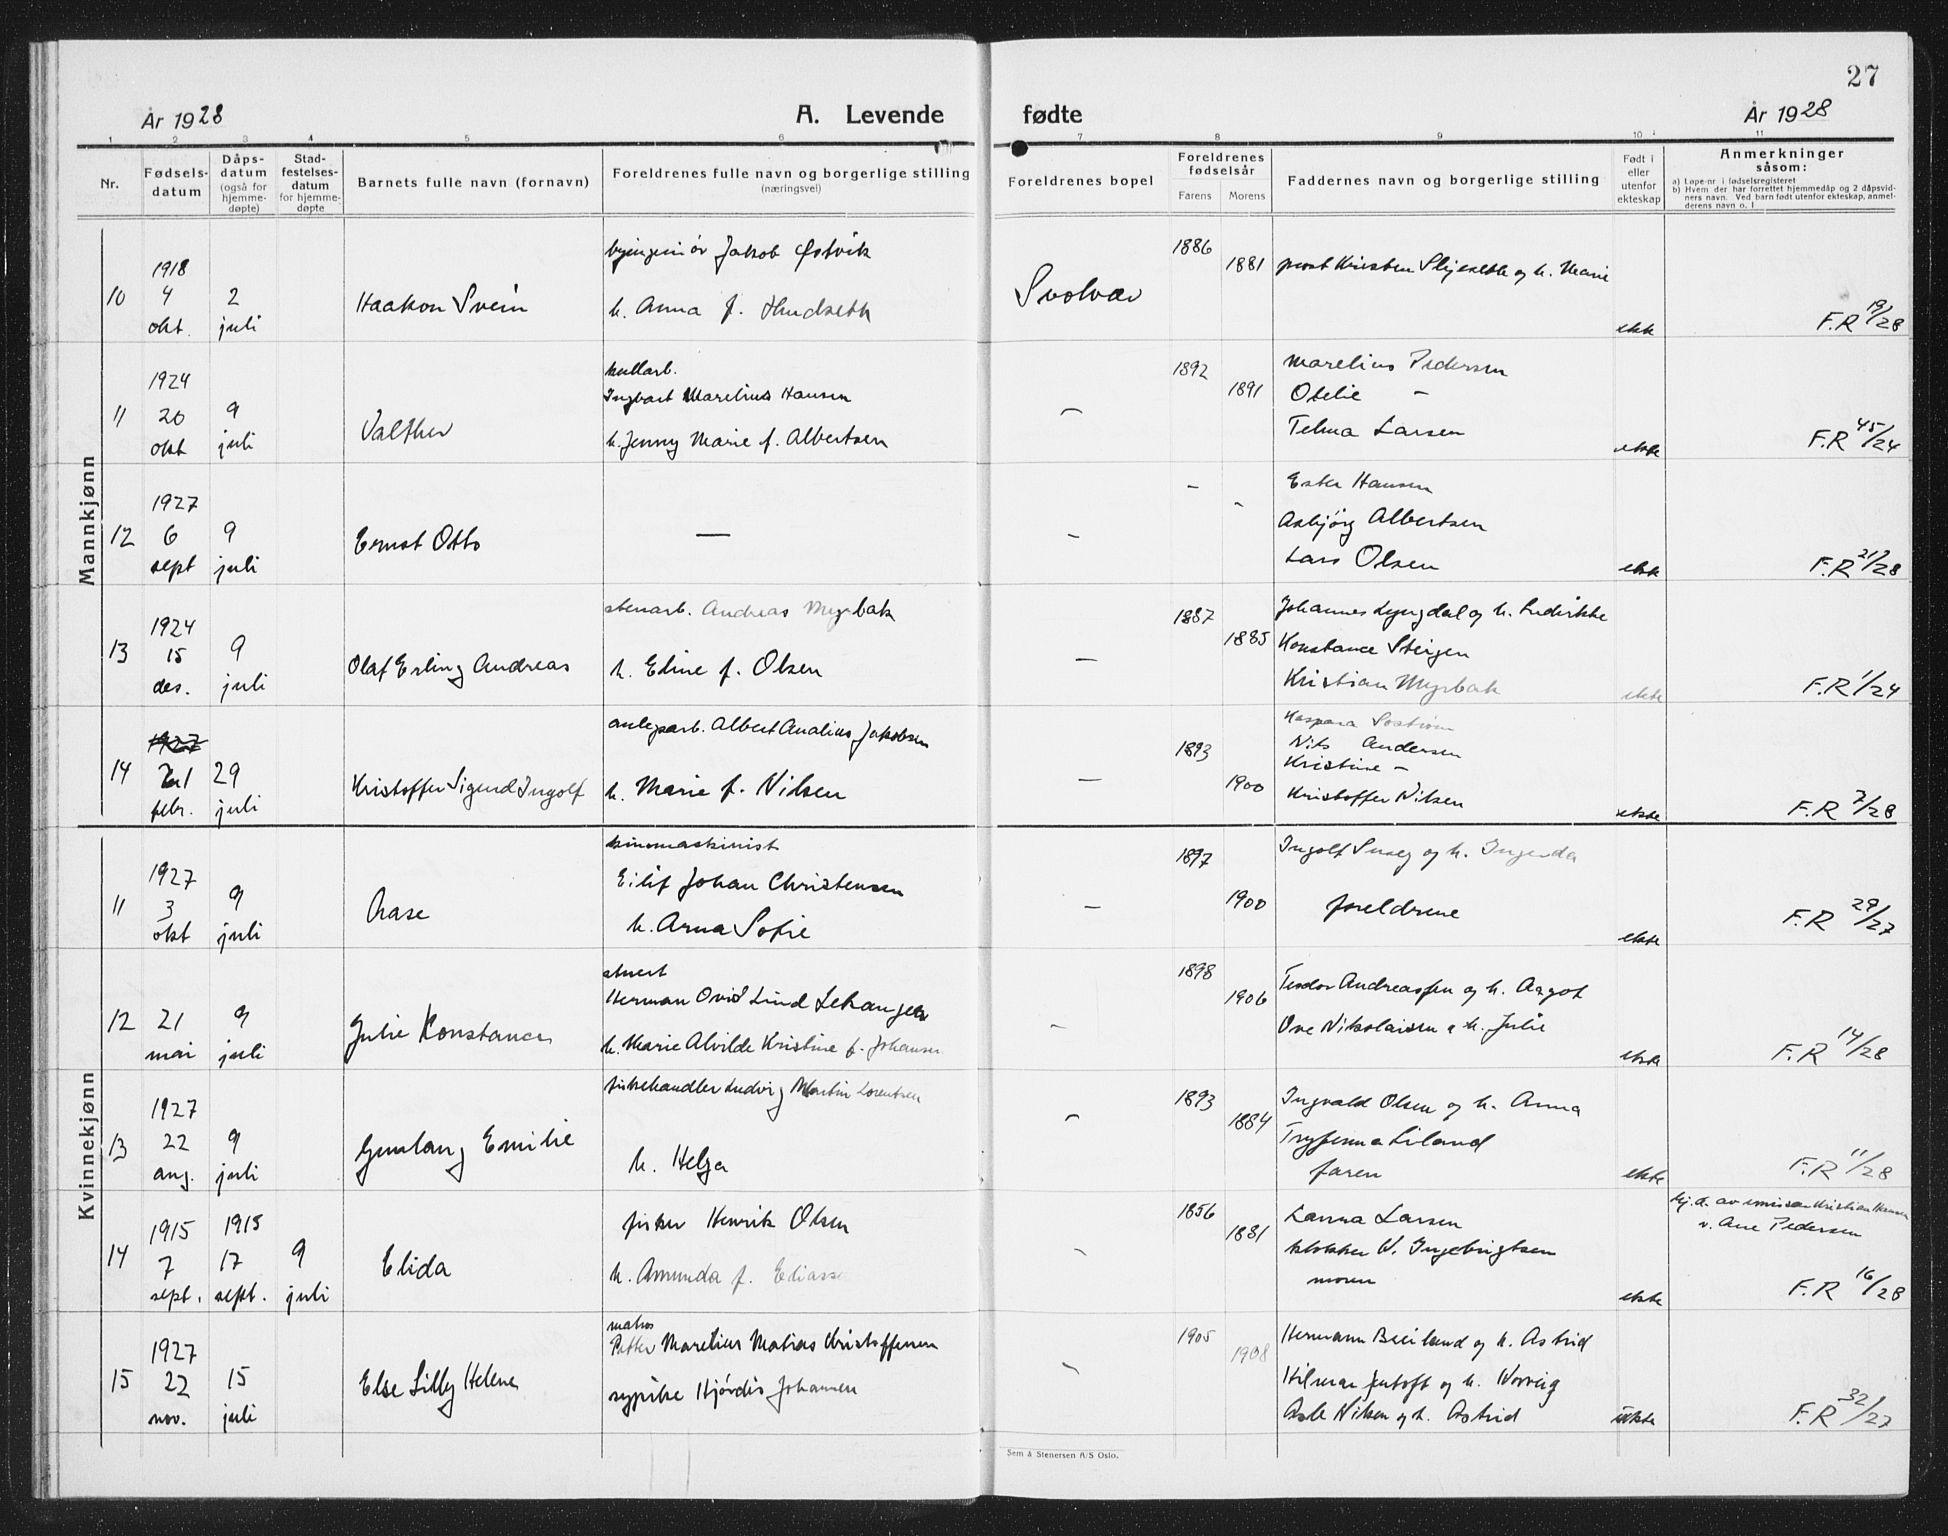 27
År 1928
A. Levende
fødte
År 1928
1 2 3 4 5 6 7 8 9 10 11
Nr.
Fødsels-
datum
Dåps-
datum
(også for
hjemme-
døpte)
Stad-
festelses-
datum
for hjemme-
døpte
Barnets fulle navn (fornavn)
Foreldrenes fulle navn og borgerlige stilling
(næringsvei)
Foreldrenes bopel
Foreldrenes
fødselsår
Farens Morens
Faddernes navn og borgerlige stilling
Født i
eller
utenfor
ekteskap
Anmerkninger
såsom:
a) Løpe-nr i fødselsregisteret
b) Hvem der har forrettet hjemmedåp og 2 dåpsvid-
ners navn. Ved barn født utenfor ekteskap, anmel-
derens navn o. l
Mannkjønn
10
1918
4
okt.
2
juli
Haakon Svein
byingeniør Jakob Østvik
h. Anna f.
Svolvær
1886
1881
prost Kristen Skjeseth og h. Marie
ekte
F.R 19/28
11
1924
20
okt
9
juli
Valther
kullarb.
Ingbart Marelius Hansen
h. Jenny Marie f. Albertsen
–
1892
1891
Marelius Pedersen
Otelie –
Telma Larsen
ekte
F.R 45/24
12
1927
6
sept
9
juli
Ernst Otto
—
–
– –
Ester Hansen
Asbjørg Albertsen
Lars Olsen
ekte
F.R 21/28
13
1924
15
des.
9
juli
Olaf Erling Andreas
stenarb. Andreas Myrbak
h. Eline f. Olsen
–
1887
1885
Johannes Lyngdal og h. Fredrikke
Konstance Steigen
Kristian Myrbak
ekte
F.R 1/24
14
1927
21
febr.
29
juli
Kristoffer Sigurd Ingolf
anlegsarb. Albert Analius Jakobsen
h. Marie f. Nilsen
–
1893
1900
Kaspara
Nils Andersen
Kristine –
Kristoffer Nilsen
ekte
F.R 7/28
Kvinnekjønn
11
1927
3
okt
9
juli
Aase
kinomaskinist
Eilif Johan Christensen
h. Arna Sofie
–
1897
1900
Ingolf og h.
foreldrene
ekte
F.R 29/27
12
21
mai
9
juli
Julie Konstance
stuert
Herman Ovid Lind
h. Marie Alvilde Kristine f. Johansen
–
1898
1906
Teodor Andreassen og h. Aagot
Ove Nikolaisen o h. Julie
ekte
F.R 14/28
13
1927
22
aug.
9
juli
Gunlaug Emilie
fiskehandler Ludvig Martin Lorentsen
h. Helga
–
1893
1884
Ingvald Olsen og h. Anna
Tryfenna Liland
faren
ekte
F.R 11/28
14
1915
7
sept.
1915
17
sept.
9
juli
Elida
fisker Henrik Olsen
h. Amunda f.
–
1856
1881
Lanna Larsen
klokker W. Ingebrigtsen
moren
ekte
hj. d. av emissær Kristian Hansen
v. Ane Pedersen
F.R 16/28
15
1927
22
nov.
15
juli
Else Lilly Helene
matros
Petter Marelius Matias Kristoffersen
sypike Hjørdis Johansen
–
1905
1908
Hermann Beiland og h. Astrid
Hilmar Jentoft og h. Norveig
Asle Nilsen og h. Astrid
uekte
F.R 32/27
Sem & Stenersen A/S Oslo.